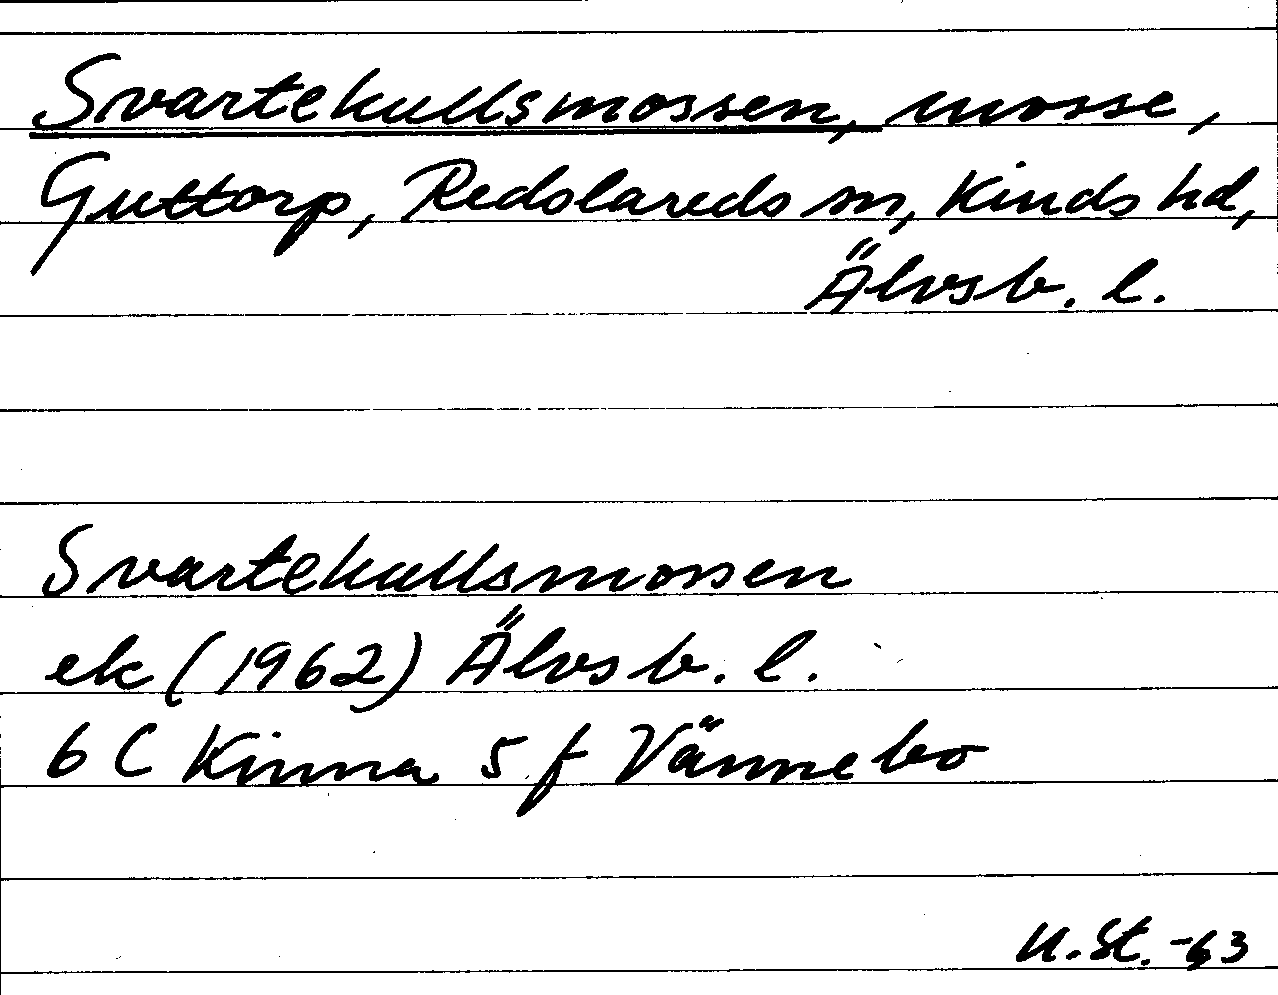 Svartekullsmossen, mosse,
Guttorp, Redslareds sn, Kinds hd,
Älvsb. l.
Svartekullsmossen
ek (1962) Älvsb. l.
6 C Kinna 5 f Vännebo
U.St. -63